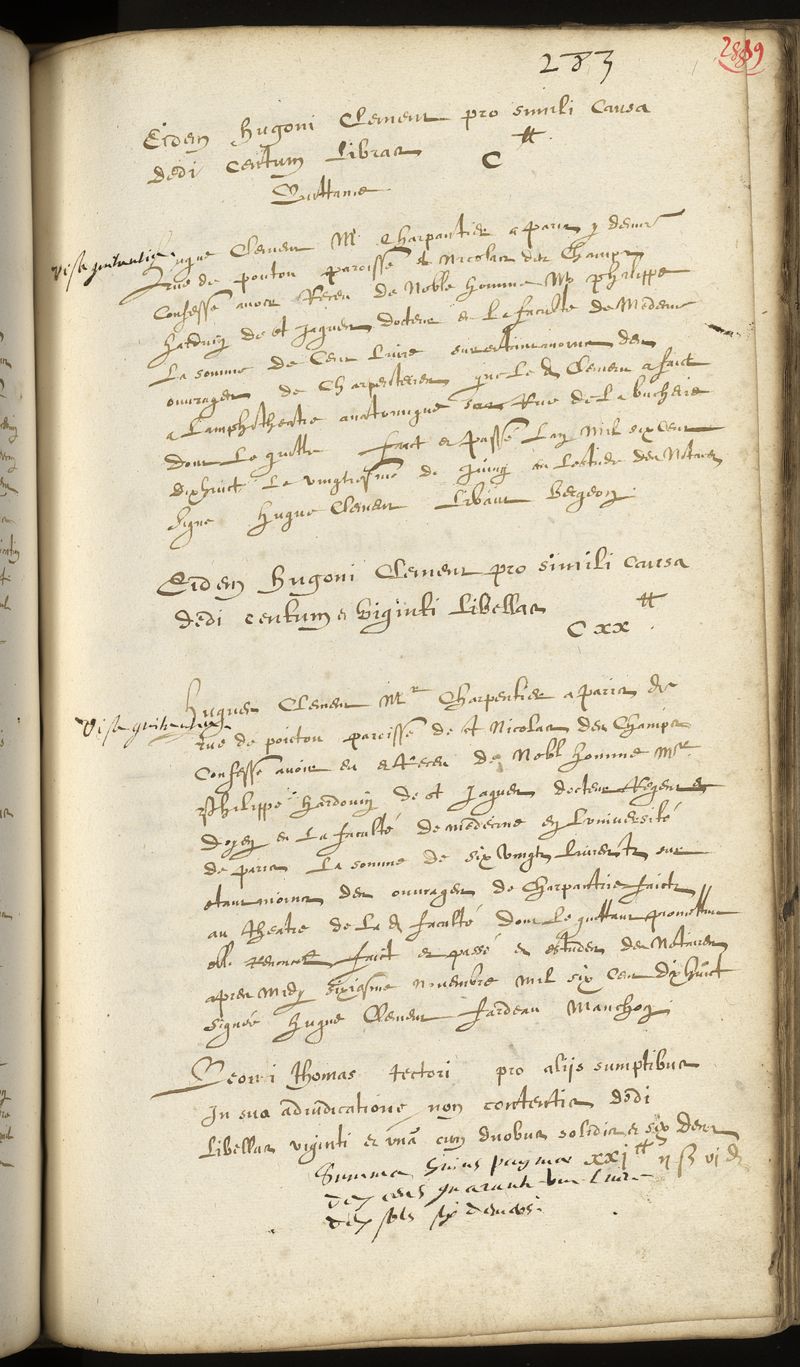 283
2889
Eidem Hugoni Clement pro simili causa
dedi centum libras C ₶
Quittance
Visa quittantia
Hugue Clement Mr Charpantier a paris y demt
rue de poitou paroisse st Nicolas des Champs
Confesse avoir Receu de Noble homme Mr philippe
Harduin de st Jaques docteur en La faculte de Medecine
La somme de Cent Livre sur estant moins des
ouvrages de Charpenterie que Le d Clement a faict
a Lamphitheatre anatomique Rue de La bucherie
dont Le quitte faict et passé Lan Mil six Cent
dixhuict Le vingtiesme de Juing en Lestude des Notaires
signe Hugue Clement Libaut Bergeon
Eidem Hugoni Clement pro simili causa
dedi centum et viginti Libellas
C xx ₶
Visa quittantia
Hugues Clement Mr Charpentier a paris
rue de poictou paroisse de st Nicolas des Champs
Confesse avoir eu et Receu de Nobl homme Mr
Philippe Hardouin de st Jaques docteur Regent et
doyen en La faculté de medecine en Luniversité
de paris La somme de six vingts Livres tz sur
etant moins des ouvrages de Charpantrie faicts
au theatre de La d faculté dont Le quittant promettant
obl. Renonceant faict et passé es estudes des Notaires
apres midy sixiesme novembre mil six Cent dixhuict
signé Hugue Clement Jardeau Manchon
Georgi Thomas tectori pro alijs sumptibus
In sua adiudicatione non contentis dedi
Libellas viginti et una cum duobus solidis et sex den
xxj ₶ ij ß vj d
Summa huius paginae
deux cens quarante une livre
deux sols six deniers.